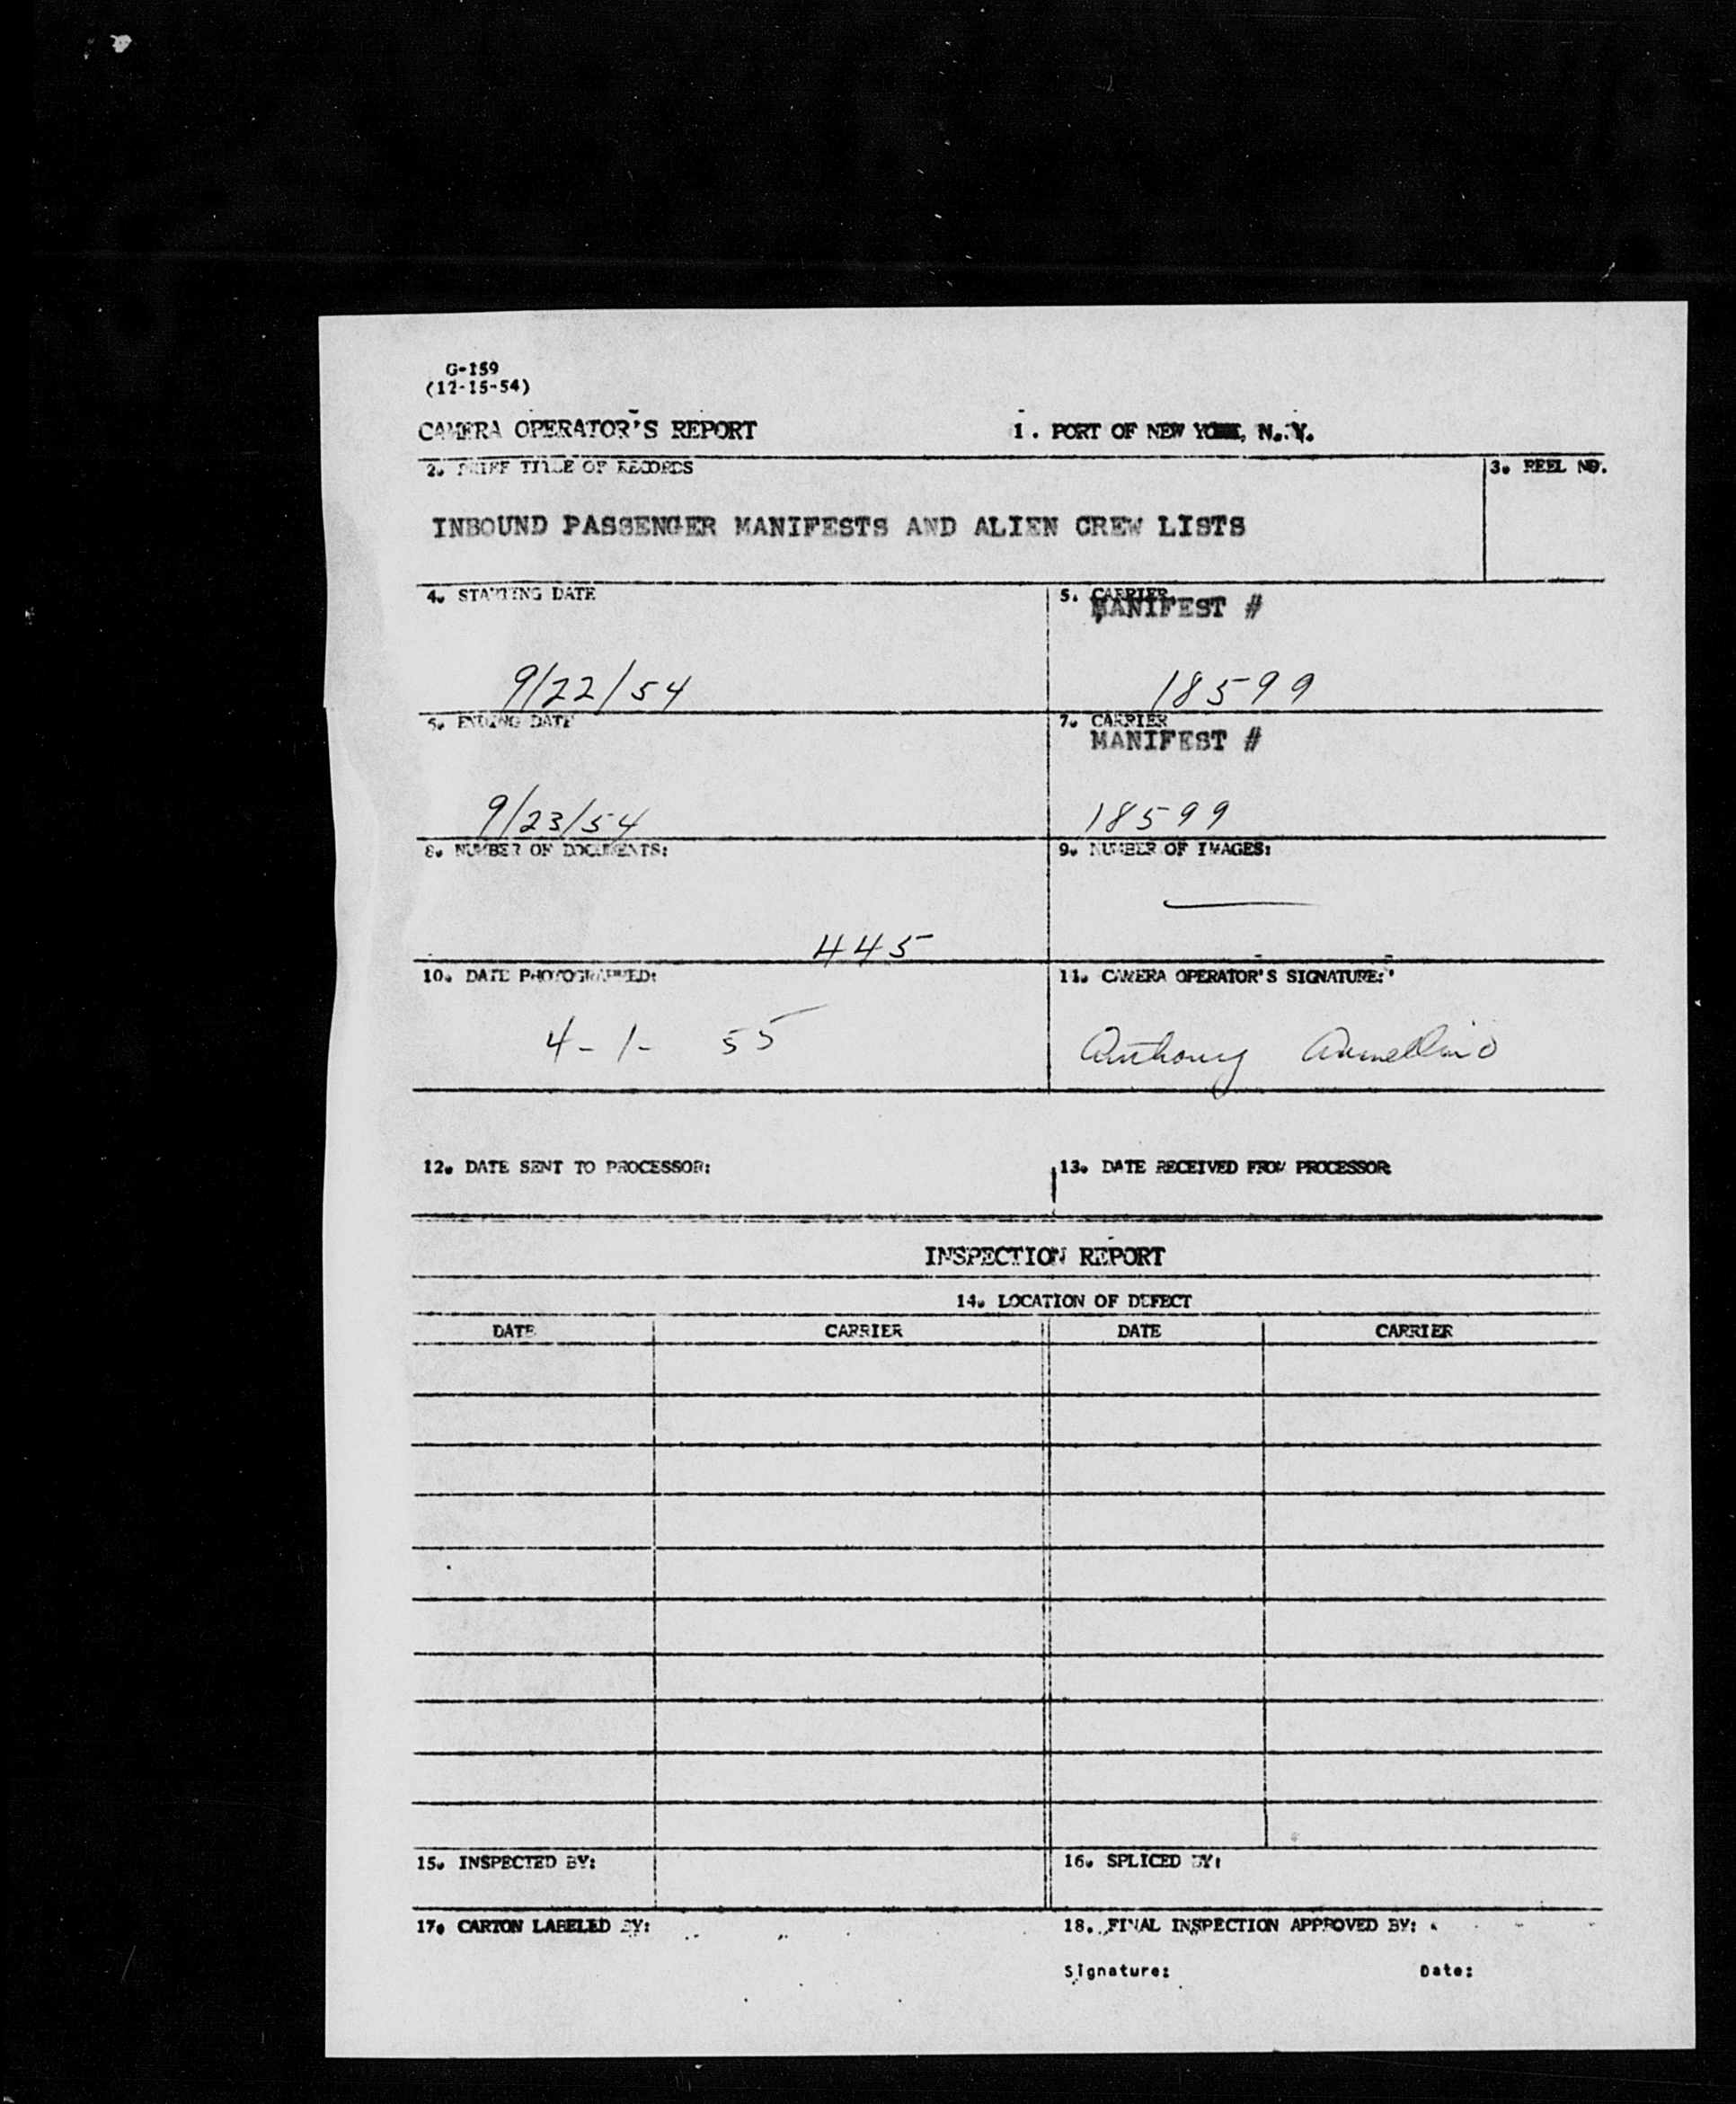 G-159
(12-15-54)
CAMERA OPERATOR'S REPORT 1. PORT OF NEW YORK, N. Y.
2. BRIEF TITLE OF RECORDS 3. REEL NO.
INBOUND PASSENGER MANIFESTS AND ALIEN CREW LISTS
4. STARTING DATE 5. CARRIER
MANIFEST #
9/22/54 18599
6. ENDING DATE 7. CARRIER
MANIFEST #
9/23/54 18599
8. NUMBER OF DOCUMENTS: 9. NUMBER OF IMAGES:
445
10. DATE PHOTOGRAPHED: 11. CAMERA OPERATOR'S SIGNATURE:
4-1-55 Anthony Armellino
12. DATE SENT TO PROCESSOR: 13. DATE RECEIVED FROM PROCESSOR
INSPECTION REPORT
14. LOCATION OF DEFECT
DATE CARRIER DATE CARRIER
15. INSPECTED BY: 16. SPLICED BY:
17. CARTON LABELED BY: 18. FINAL INSPECTION APPROVED BY:
Signature: Date: